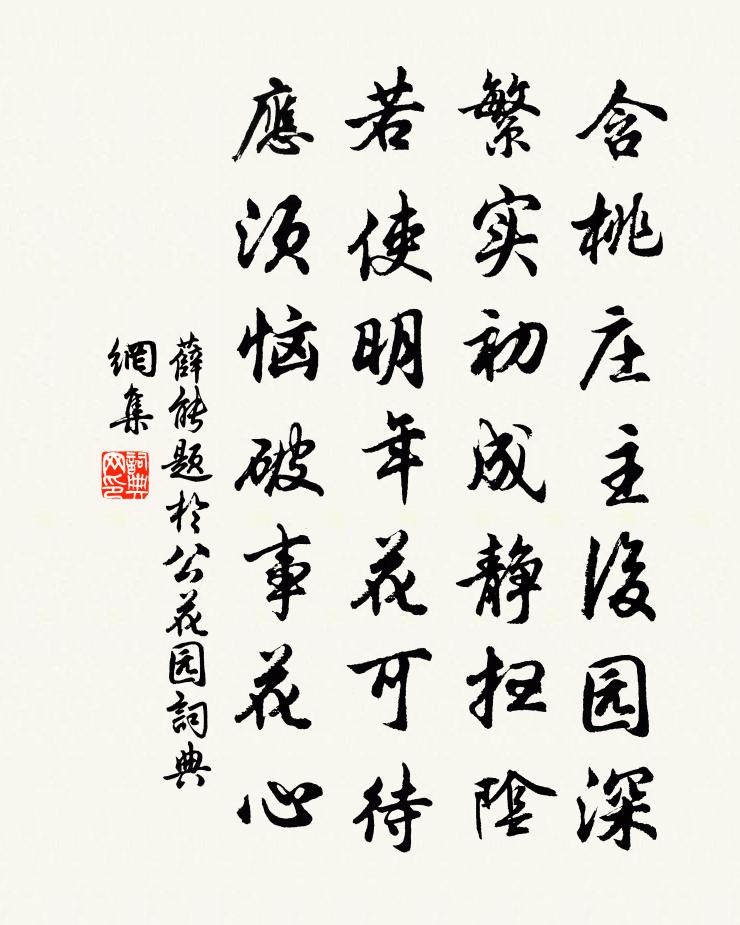 含桃庄主后园深
繁实初成静扫陰
若使明年花可待
應须恼破事花心
薛能题於公花园詞典
網集
詞典
网印